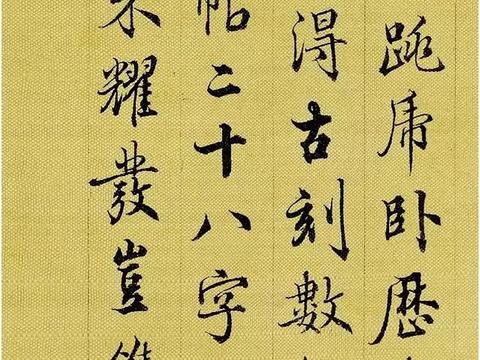 跳虎卧歷
得古刻數
帖二十八字
米耀發豈